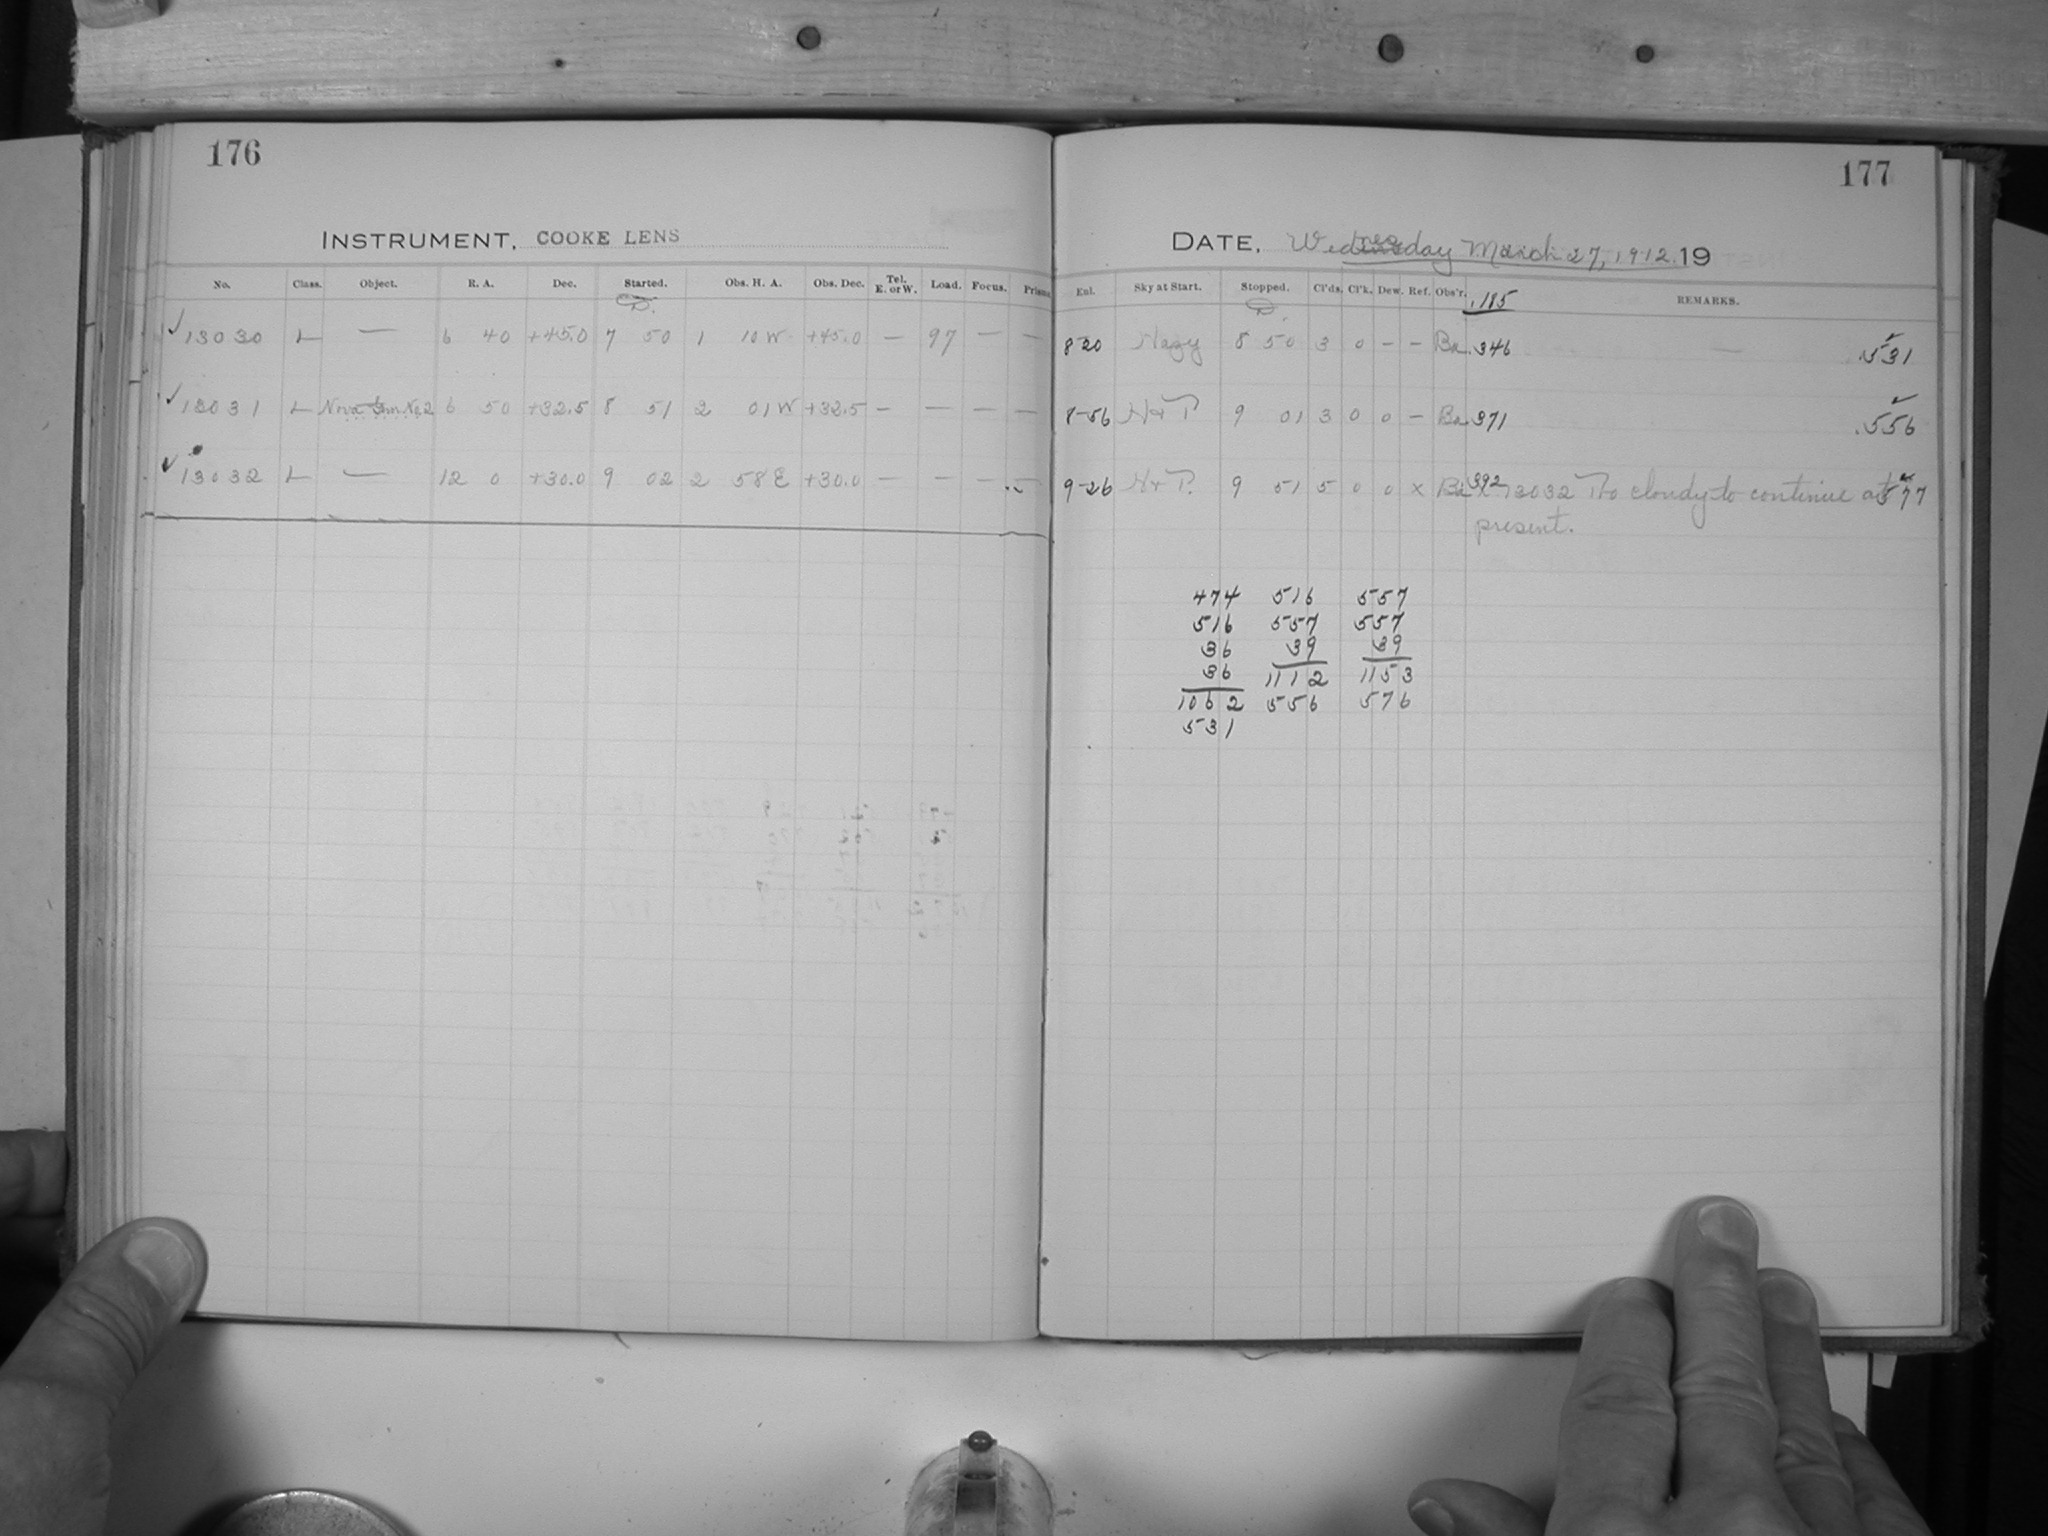 176
177
INSTRUMENT, COOKE LENS
DATE, Wednesday March 27, 1912 19
No. Class. Object. R. A. Dec. Started. Obs. H. A. Obs. Dec. Tel. E. or W. Load. Focus. Prisms
Exl. Sky at Start. Stopped. Cl'ds. Cl'k. Dew. Ref. Obs'r. .185 REMARKS.
D.
D.
✓ 13030 L — 6 40 +45.0 7 50 1 10 W. +45.0 — 97 — —
8-20 Hazy 8 50 3 0 - - Ba .346 — .531
✓ 13031 L Nova Gem. No. 2 6 50 +32.5 8 51 2 01 W +32.5 — — — —
8-56 H & P 9 01 3 0 0 - Ba .371 .556
✓ 13032 L — 12 0 +30.0 9 02 2 58 E +30.0 — — — —
9-26 H & P. 9 51 5 0 0 x Ba 392 x 13032 Too cloudy to continue at .577
present.
474 516 557
516 557 557
36 39 39
36 1112 1153
1062 556 576
531